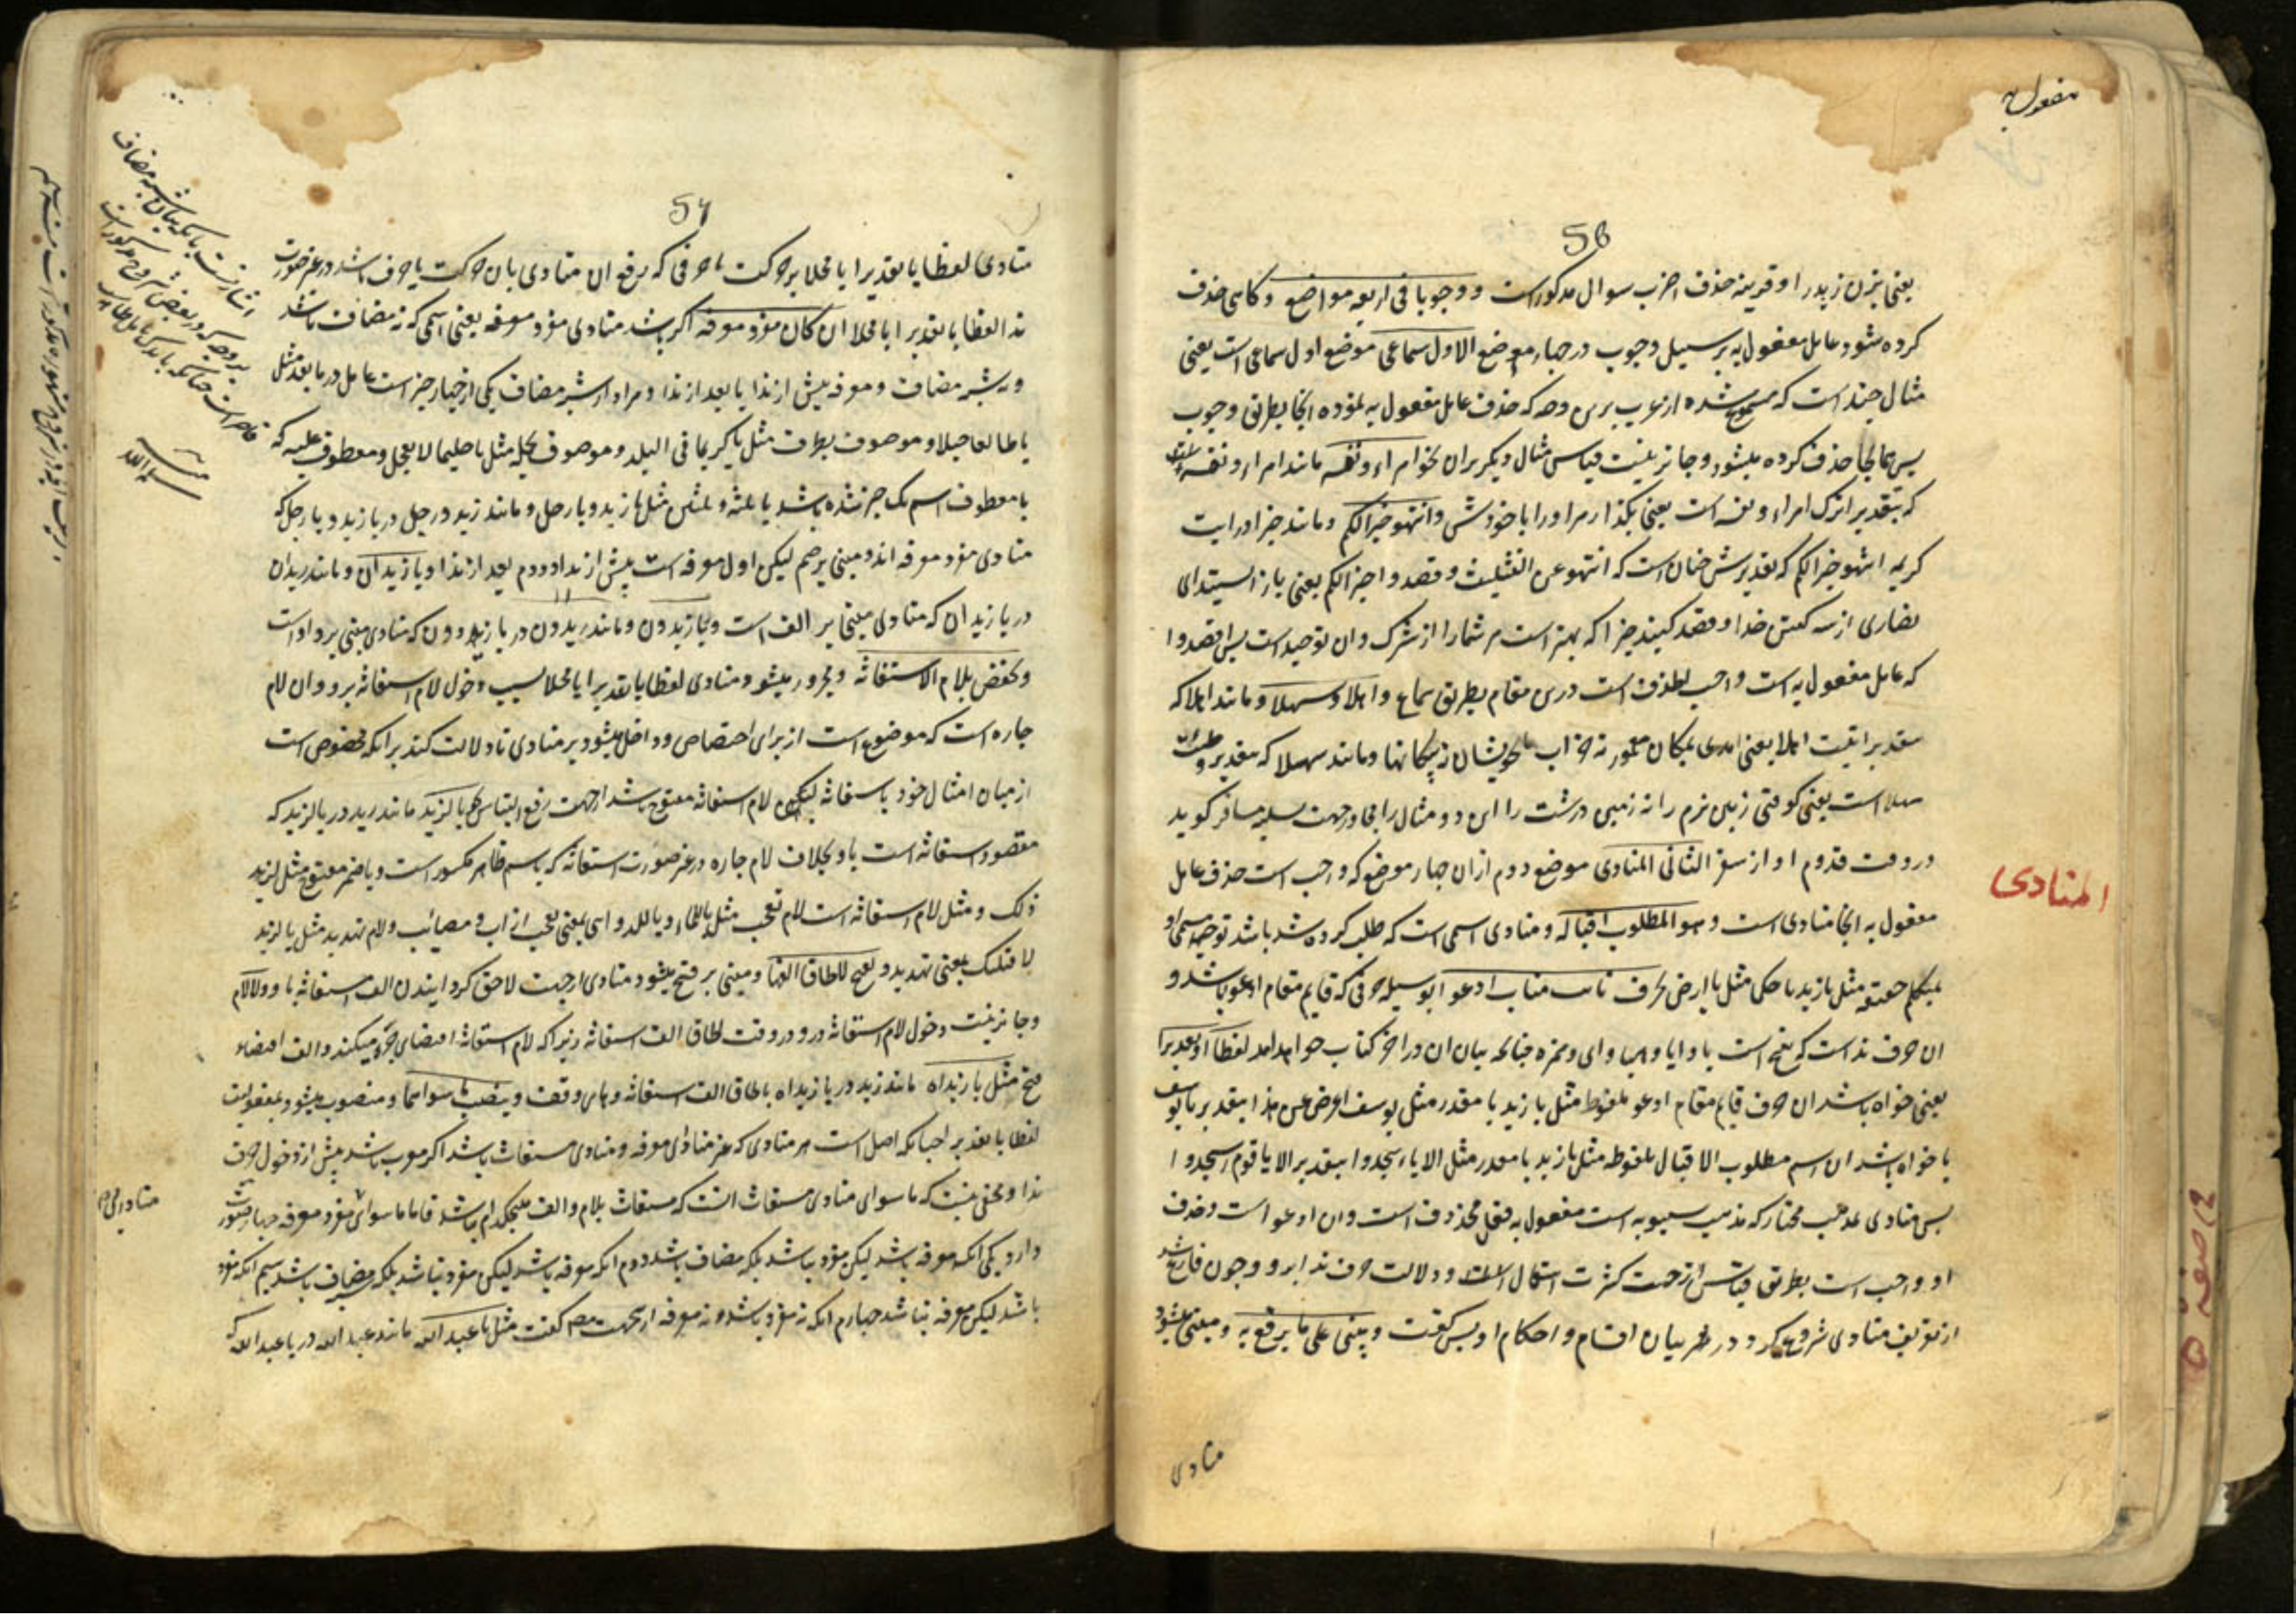 مفعول به
56
یعنی بزن زید را و قرینه حذف اضرب سوال مذکور است و وجوبا فی اربعه مواضع و کاهی حذف
کرده شود عامل مفعول به بر سبیل وجوب در چهار موضع الاول سماعی موضع اول سماعی است یعنی
مثال چند است که مسموع شده از عرب برین وجه که حذف عامل مفعول به نموده انجا بطریق وجوب
پس همانجا حذف کرده میشود و جائز نیست قیاس مثال دیکر بران نحو امراء و نفسه مانند امراء و نفسه
که بتقدیر اترک امراء و نفسه است یعنی بکذار مرد را با خودش و انتهوا خیرا لکم و مانند خیرا در ایت
کریمه انتهوا خیرا لکم که تقدیرش چنان است که انتهوا عن التثلیث و قصدوا خیرا لکم یعنی باز ایستید ای
نصاری از سه کفتن خدا و قصد کنید چیزا که بهتر است مر شما را از شرک و ان توحید است پس اقصدوا
که عامل مفعول به است واجب الحذف است درین مقام بطریق سماع و اهلا و سهلا و مانند اهلا که
بتقدیر اتیت اهلا یعنی امدی بمکان معمور نه خراب یا بخویشان نه بیکانها و مانند سهلا که بتقدیر وطیت
سهلا است یعنی کوفتی زمین نرم را نه زمین درشت را این دو مثال را بجهت مسافر کوید
در وقت قدوم او از سفر الثانی المنادی موضع دوم از ان چهار موضع که واجب است حذف عامل
المنادی
مفعول به انجا منادی است و هو المطلوب اقباله و منادی اسمی است که طلب کرده شد باشد توجه مسمی او
بمتکلم حقیقة مثل یا زید یا حکما مثل یا ارض بحرف نائب مناب ادعو بوسیله حرفی که قایم مقام ادعو باشد و
ان حرف ندا است که پنج است یا و ایا و هیا و ای و همزه چنانچه بیان ان در اخر کتاب خواهد امد لفظا او تقدیرا
یعنی خواه باشد ان حرف قایم مقام ادعو ملفوظ مثل یا زید یا مقدر مثل یوسف اعرض عن هذا بتقدیر یا یوسف
یا خواه باشد ان اسم مطلوب الاقبال ملفوظ مثل یا زید یا مقدر مثل الا یا اسجدوا بتقدیر الا یا قوم اسجدوا
پس منادی بمذهب مختار که مذهب سیبویه است مفعول به فعل محذوف است و ان ادعو است و حذف
او واجب است بطریق قیاس از جهت کثرت استعمال و دلالت حرف ندا برو و چون فارغ شد
از تعریف منادی شروع کرد در بیان اقسام و احکام او پس کفت و یبنی علی ما یرفع به و مبنی میشود
منادی
57
منادی لفظا یا تقدیرا یا محلا بر حرکت یا حرفی که رفع ان منادی بان حرکت یا حرف باشد در غیر صورت
ندا لفظا یا تقدیرا یا محلا ان کان مفردا معرفة اکر باشد منادی مفرد معرفه یعنی اسمی که نه مضاف باشد
و نه شبه مضاف و معرفه پیش از ندا یا بعد از ندا و مراد از شبه مضاف یکی از چهار چیز است عامل در ما بعد مثل
یا طالعا جبلا و موصوف بظرف مثل یا کریما فی البلد و موصوف بجمله مثل یا حلیما لا یعجل و معطوف علیه که
با معطوف اسم یک چیز شده باشد یا ثلثة و ثلثین مثل یا زید و یا رجل و مانند زید و رجل در یا زید و یا رجل که
منادی مفرد معرفه اند و مبنی بر ضم لیکن اول معرفه است پیش از ندا و دوم بعد از ندا و یا زیدان و مانند زیدان
در یا زیدان که منادی مبنی بر الف است و یا زیدون و مانند زیدون در یا زیدون که منادی مبنی بر واو است
و یخفض بلام الاستغاثة و مجرور میشود منادی لفظا یا تقدیرا یا محلا بسبب دخول لام استغاثه برو و ان لام
جاره است که موضوع است از برای اختصاص و داخل میشود بر منادی تا دلالت کند برانکه مخصوص است
از میان امثال خود باستغاثه لیکن لام استغاثه مفتوح باشد از جهت رفع التباس یا لزید مانند زید در یا لزید که
مقصود استغاثه است باو بخلاف لام جاره در غیر صورت استغاثه که باسم ظاهر مکسور است و با ضمیر مفتوح مثل لزید
و لک و مثل لام استغاثه است لام تعجب مثل یا للماء و یا للدواهی یعنی عجب از اب و مصائب و لام تهدید مثل یا لزید
لاقتلنک بمعنی تهدید و یفتح لالحاق الفها و مبنی بر فتح میشود منادی از جهت لاحق کردانیدن الف استغاثه با او و لا لام
و جائز نیست دخول لام استغاثه درو در وقت الحاق الف استغاثه زیرا که لام استغاثه اقتضای جر میکند و الف اقتضاء
فتح مثل یا زیداه مانند زید در یا زیداه بالحاق الف استغاثه و های وقف و ینصب ما سواهما و منصوب میشود بمفعولیت
لفظا یا تقدیرا چنانکه اصل است هر منادی که غیر منادای معرفه و منادی مستغاث باشد اکر معرب باشد پیش از دخول حرف
ندا و مخفی نیست که ما سوای منادی مستغاث انست که مستغاث بلام و الف هیچکدام نباشد فاما ما سوای مفرد معرفه چهار صورت
دارد یکی انکه معرفه باشد لیکن مفرد نباشد بلکه مضاف باشد دوم انکه معرفه باشد لیکن مفرد نباشد بلکه شبه مضاف باشد سیم انکه مفرد
باشد لیکن معرفه نباشد چهارم انکه نه مفرد باشد و نه معرفه ازینجهت مصنف کفت مثل یا عبد الله مانند عبد الله در یا عبد الله که
اشارتست بانکه بیان شبه مضاف
بروجهی که در بعض شروح مذکور است